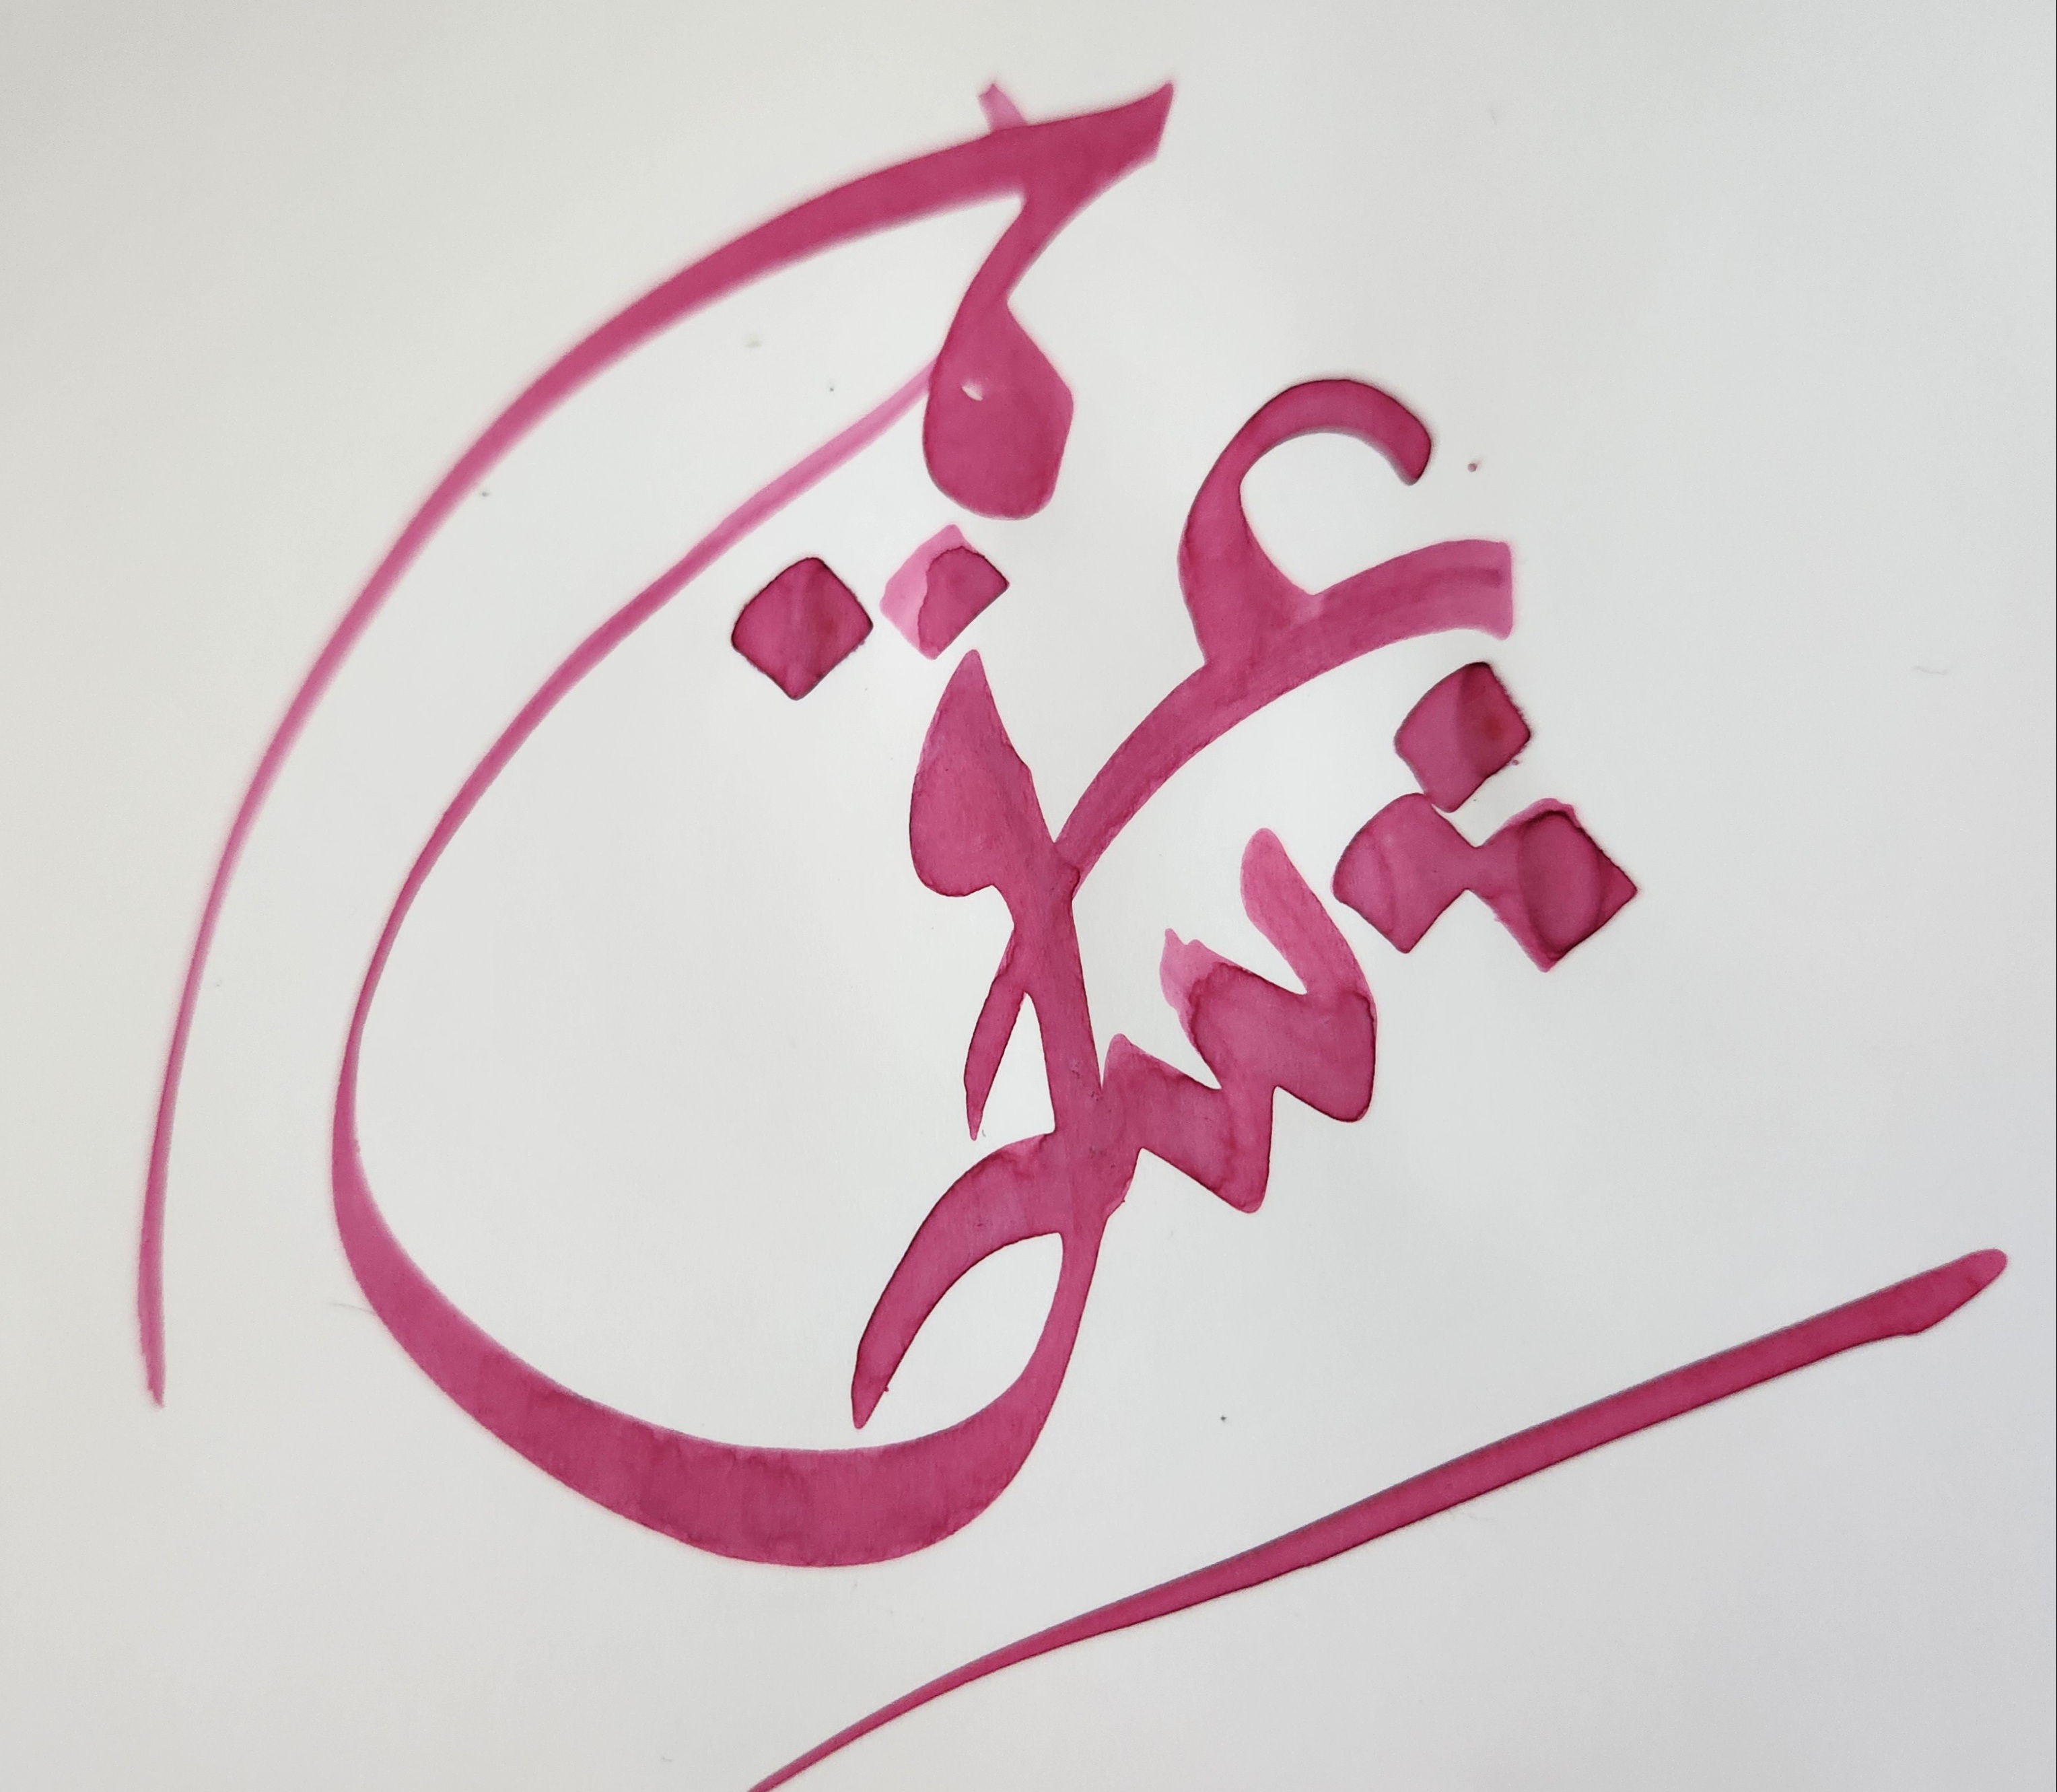 عشق